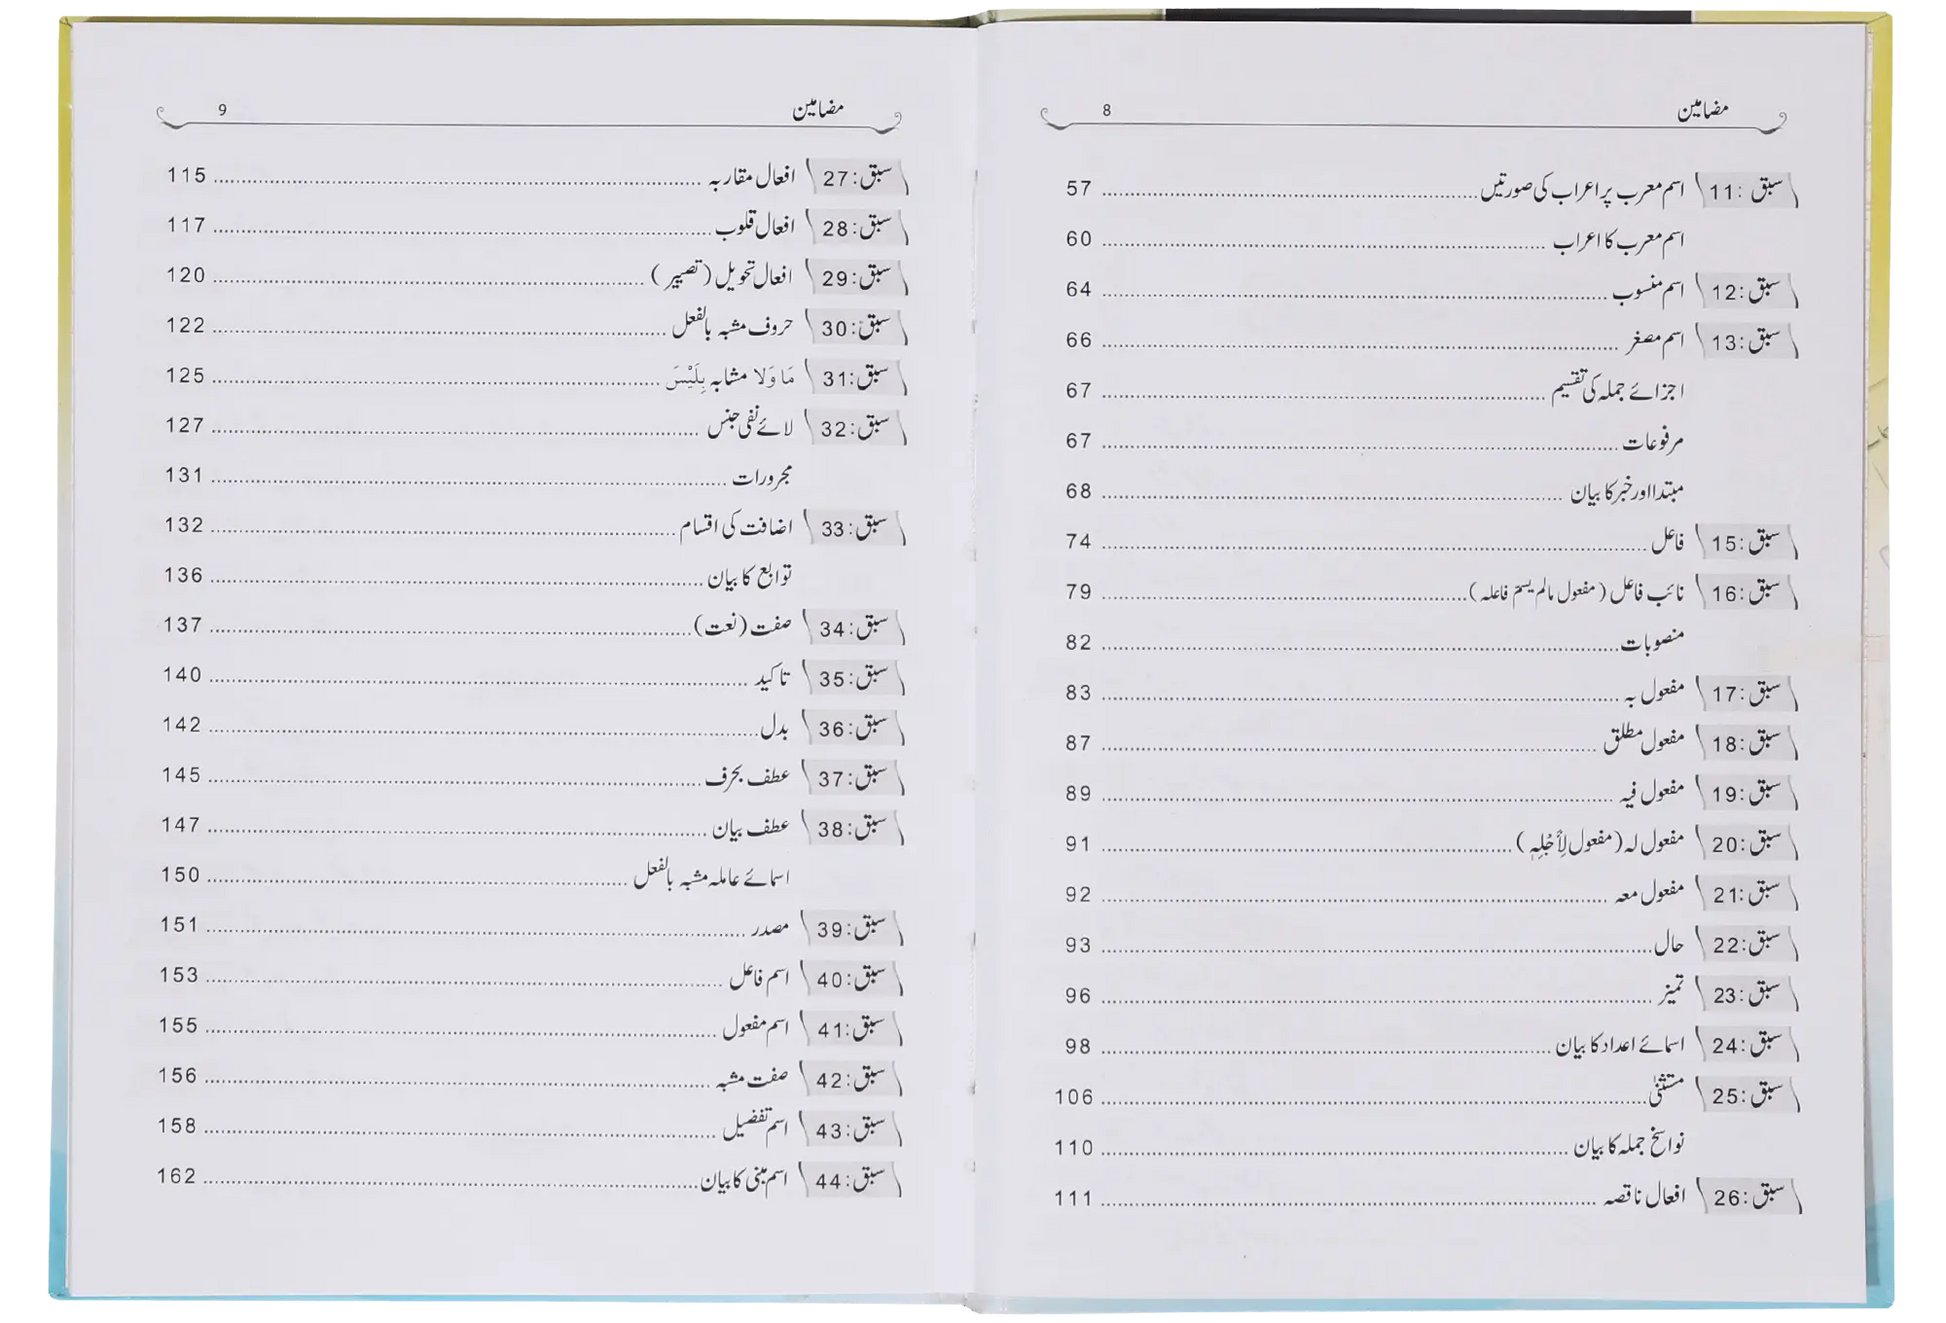 مضامین 8
سبق :11 اسم معرب پر اعراب کی صورتیں 57
اسم معرب کا اعراب 60
سبق:12 اسم منسوب 64
سبق:13 اسم مصغر 66
اجزائے جملہ کی تقسیم 67
مرفوعات 67
مبتدا اور خبر کا بیان 68
سبق:15 فاعل 74
سبق:16 نائب فاعل (مفعول مالم یسم فاعلہ) 79
منصوبات 82
سبق:17 مفعول بہ 83
سبق:18 مفعول مطلق 87
سبق:19 مفعول فیہ 89
سبق:20 مفعول لہ (مفعول لِأَجْلِهٖ) 91
سبق:21 مفعول معہ 92
سبق:22 حال 93
سبق:23 تمیز 96
سبق:24 اسمائے اعداد کا بیان 98
سبق:25 مستثنیٰ 106
نواسخ جملہ کا بیان 110
سبق:26 افعال ناقصہ 111
مضامین 9
سبق:27 افعال مقاربہ 115
سبق:28 افعال قلوب 117
سبق:29 افعال تحویل (تصییر) 120
سبق:30 حروف مشبہ بالفعل 122
سبق:31 مَا وَلَا مشابہ بِلَيْسَ 125
سبق:32 لائے نفی جنس 127
مجرورات 131
سبق:33 اضافت کی اقسام 132
توابع کا بیان 136
سبق:34 صفت (نعت) 137
سبق:35 تاکید 140
سبق:36 بدل 142
سبق:37 عطف بحرف 145
سبق:38 عطف بیان 147
اسمائے عاملہ مشبہ بالفعل 150
سبق:39 مصدر 151
سبق:40 اسم فاعل 153
سبق:41 اسم مفعول 155
سبق:42 صفت مشبہ 156
سبق:43 اسم تفضیل 158
سبق:44 اسم مبنی کا بیان 162